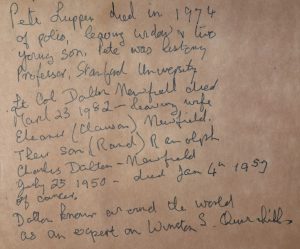 Pete Lupper died in 1974
of polio, leaving widow & two
young sons. Pete was history
Professor, Stanford University
Lt Col Dalton Newfield died
March 23 1982 – leaving wife
Eleanor (Clawson) Newfield.
Their son (Rand) Randolph
Charles Dalton-Newfield
July 25 1950 – died Jan 4th 1959
of cancer.
Dalton known around the world
as an expert on Winston S. Churchill